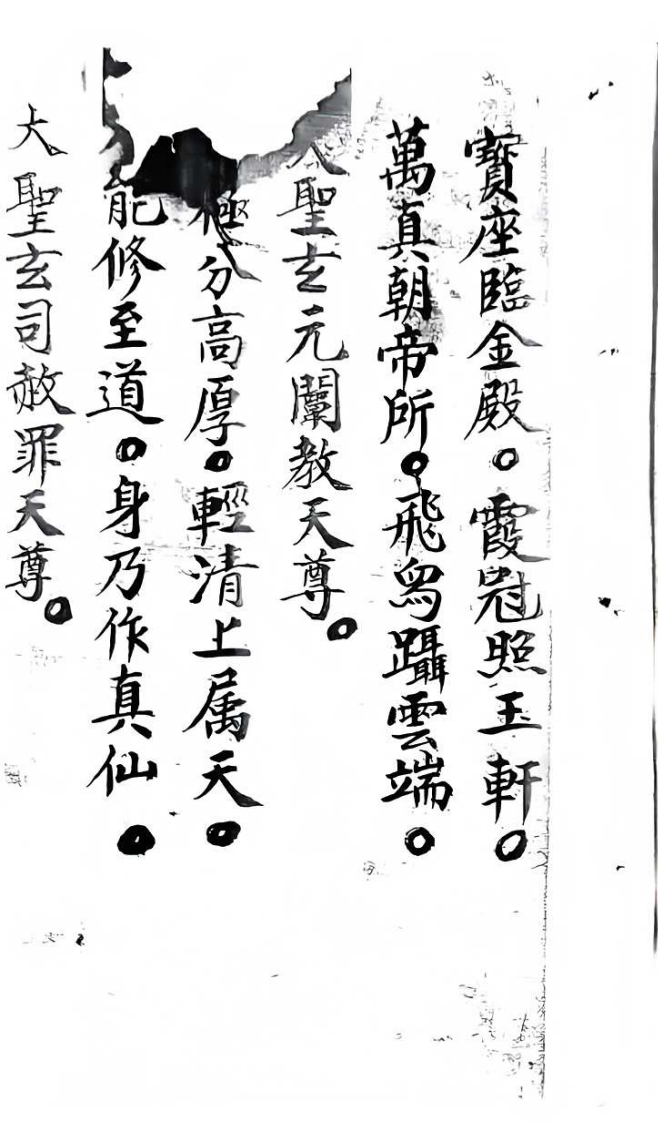 寶座臨金殿。霞冠照玉軒。
萬真朝帝所。飛舄躡雲端。
大聖玄元闡教天尊。
極分高厚。輕清上属天。
能修至道。身乃作真仙。
大聖玄司赦罪天尊。